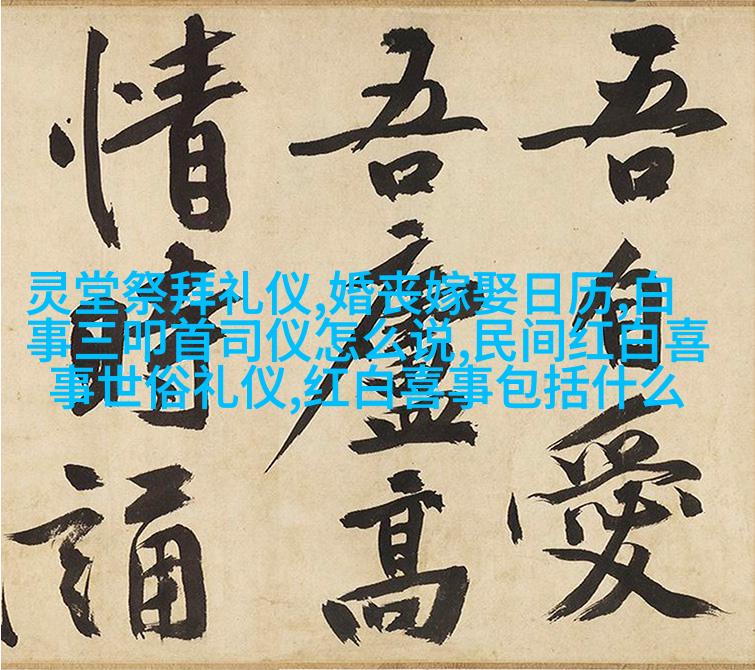 吾自愛
吾廬高
情時誦
灵堂祭拜礼仪,婚丧嫁娶日历,白
事三叩首司仪怎么说,民间红白喜
事世俗礼仪,红白喜事包括什么